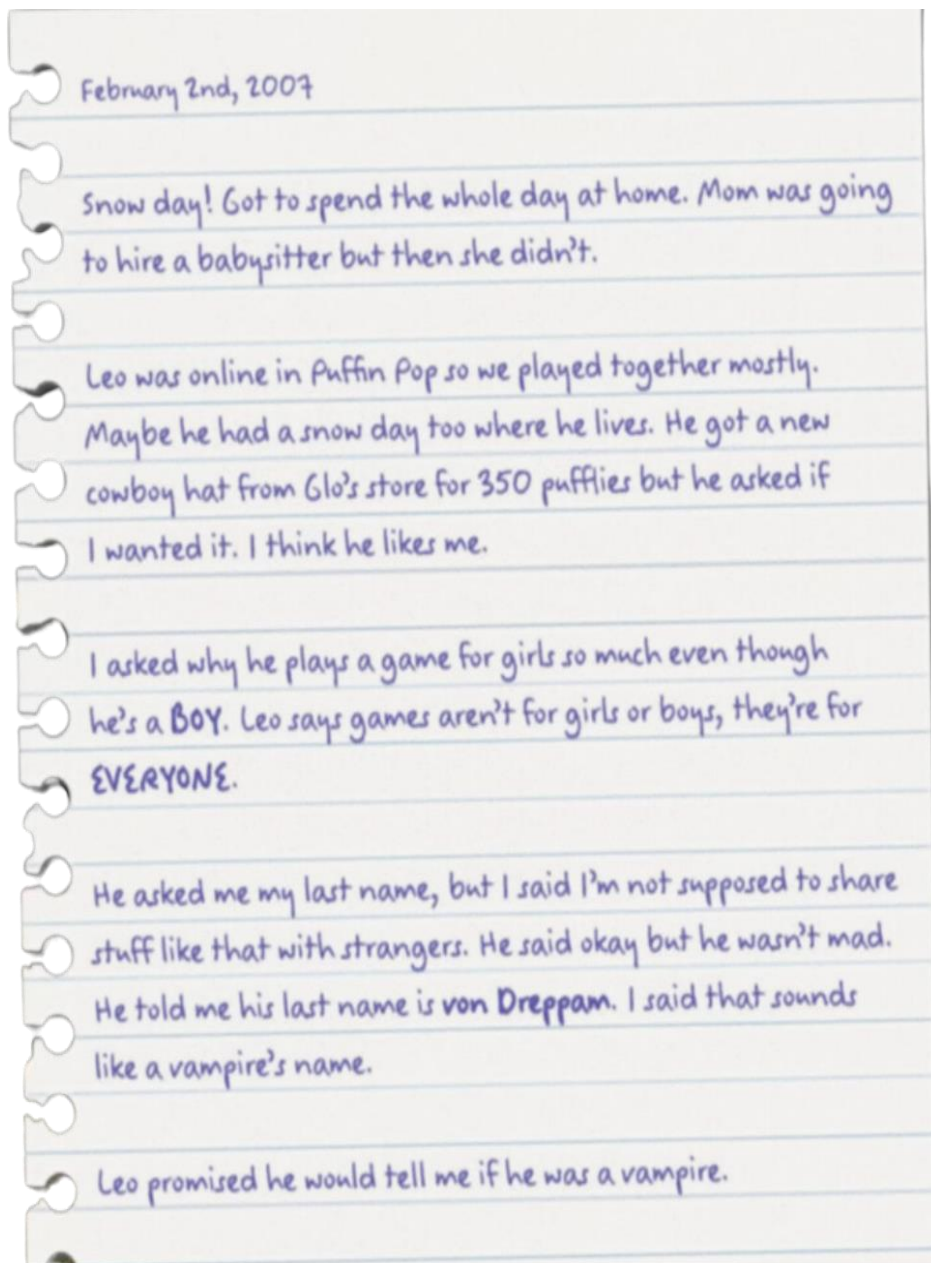 February 2nd, 2007
Snow day! Got to spend the whole day at home. Mom was going
to hire a babysitter but then she didn't.
Leo was online in Puffin Pop so we played together mostly.
Maybe he had a snow day too where he lives. He got a new
cowboy hat from Glo's store for 350 pufflies but he asked if
I wanted it. I think he likes me.
I asked why he plays a game for girls so much even though
he's a BOY. Leo says games aren't for girls or boys, they're for
EVERYONE.
He asked me my last name, but I said I'm not supposed to share
stuff like that with strangers. He said okay but he wasn't mad.
He told me his last name is von Dreppam. I said that sounds
like a vampire's name.
Leo promised he would tell me if he was a vampire.